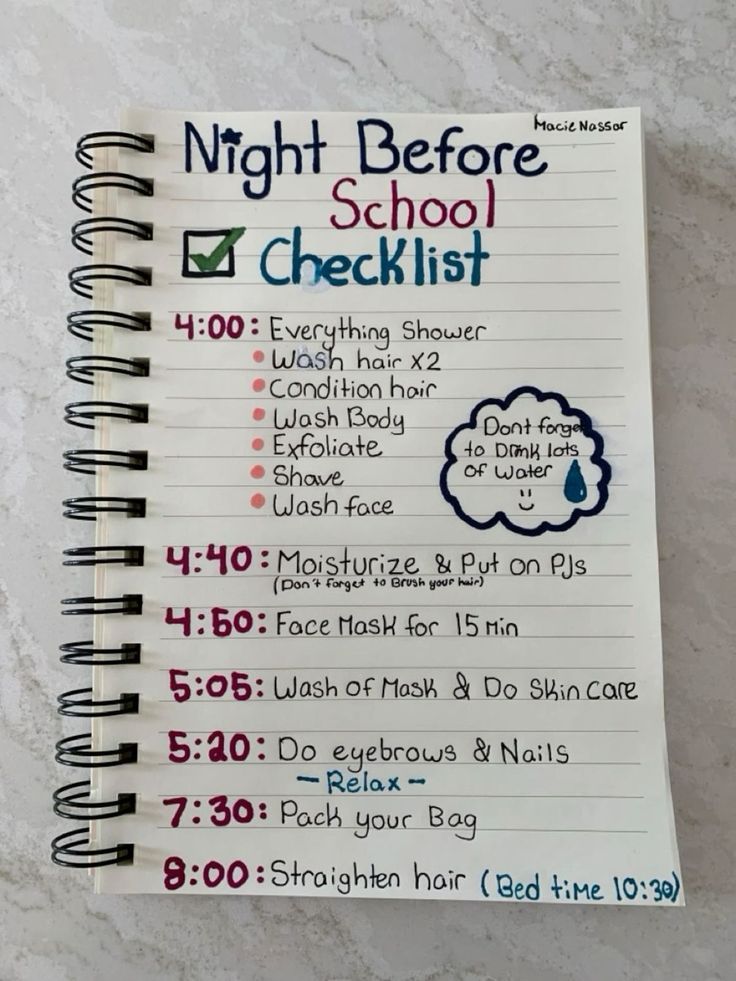 Macie Nassar
Night Before
School
Checklist
4:00: Everything Shower
Wash hair x2
Condition hair
Wash Body
Exfoliate
Shave
Wash face
Dont forget
to Drink lots
of water
4:40: Moisturize & Put on PJs
(Don't forget to Brush your hair)
4:50: Face Mask for 15 min
5:05: Wash of Mask & Do Skin care
5:20: Do eyebrows & Nails
- Relax -
7:30: Pack your Bag
8:00: Straighten hair (Bed time 10:30)